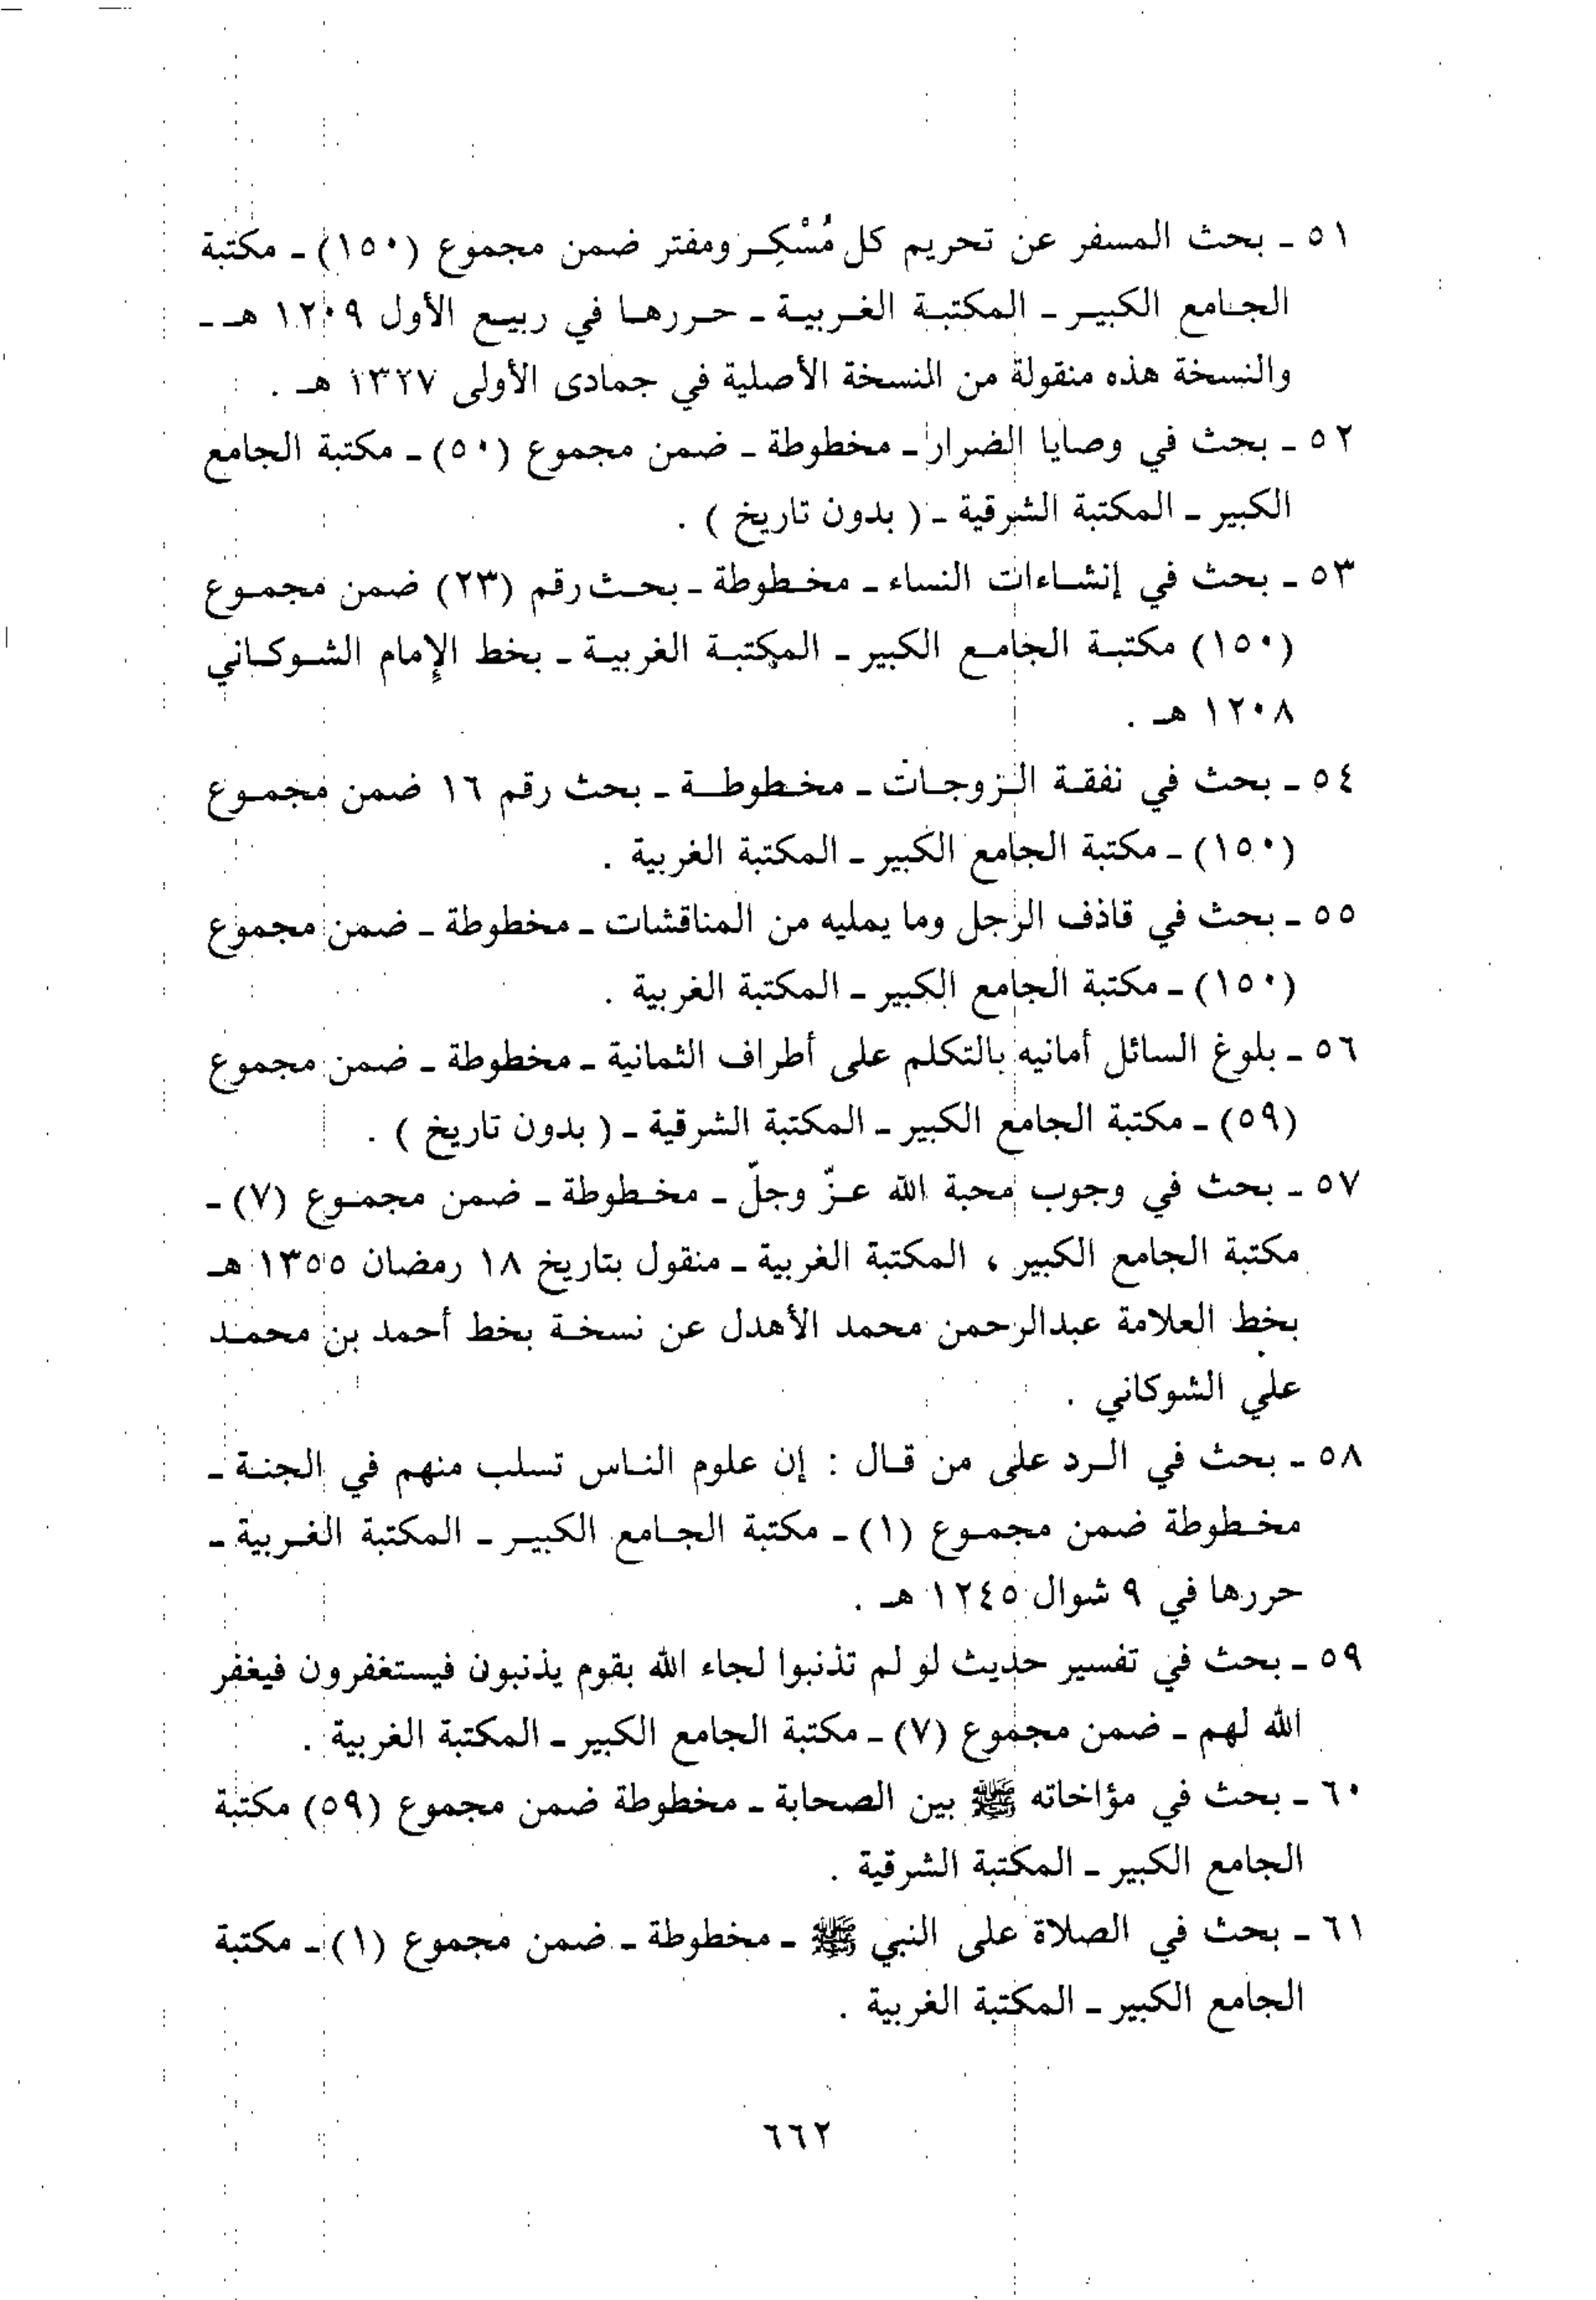 ٥١ ـ بحث المسفر عن تحريم كل مُسْكِر ومفتر ضمن مجموع (١٥٠) ـ مكتبة
الجامع الكبير ـ المكتبة الغربية ـ حررها في ربيع الأول ١٢٠٩ هـ ـ
والنسخة هذه منقولة من النسخة الأصلية في جمادى الأولى ١٣٢٧ هـ .
٥٢ ـ بحث في وصايا الضرار ـ مخطوطة ـ ضمن مجموع (٥٠) ـ مكتبة الجامع
الكبير ـ المكتبة الشرقية ـ ( بدون تاريخ ) .
٥٣ ـ بحث في إنشاءات النساء ـ مخطوطة ـ بحث رقم (٢٣) ضمن مجموع
(١٥٠) مكتبة الجامع الكبير ـ المكتبة الغربية ـ بخط الإمام الشوكاني
١٢٠٨ هـ .
٥٤ ـ بحث في نفقة الزوجات ـ مخطوطة ـ بحث رقم ١٦ ضمن مجموع
(١٥٠) ـ مكتبة الجامع الكبير ـ المكتبة الغربية .
٥٥ ـ بحث في قاذف الرجل وما يمليه من المناقشات ـ مخطوطة ـ ضمن مجموع
(١٥٠) ـ مكتبة الجامع الكبير ـ المكتبة الغربية .
٥٦ ـ بلوغ السائل أمانيه بالتكلم على أطراف الثمانية ـ مخطوطة ـ ضمن مجموع
(٥٩) ـ مكتبة الجامع الكبير ـ المكتبة الشرقية ـ ( بدون تاريخ ) .
٥٧ ـ بحث في وجوب محبة الله عزّ وجلّ ـ مخطوطة ـ ضمن مجموع (٧) ـ
مكتبة الجامع الكبير ، المكتبة الغربية ـ منقول بتاريخ ١٨ رمضان ١٣٥٥ هـ
بخط العلامة عبدالرحمن محمد الأهدل عن نسخة بخط أحمد بن محمد
علي الشوكاني .
٥٨ ـ بحث في الرد على من قال : إن علوم الناس تسلب منهم في الجنة ـ
مخطوطة ضمن مجموع (١) ـ مكتبة الجامع الكبير ـ المكتبة الغربية ـ
حررها في ٩ شوال ١٢٤٥ هـ .
٥٩ ـ بحث في تفسير حديث لو لم تذنبوا لجاء الله بقوم يذنبون فيستغفرون فيغفر
الله لهم ـ ضمن مجموع (٧) ـ مكتبة الجامع الكبير ـ المكتبة الغربية .
٦٠ ـ بحث في مؤاخاته ﷺ بين الصحابة ـ مخطوطة ضمن مجموع (٥٩) مكتبة
الجامع الكبير ـ المكتبة الشرقية .
٦١ ـ بحث في الصلاة على النبي ﷺ ـ مخطوطة ـ ضمن مجموع (١) ـ مكتبة
الجامع الكبير ـ المكتبة الغربية .
٦٦٢